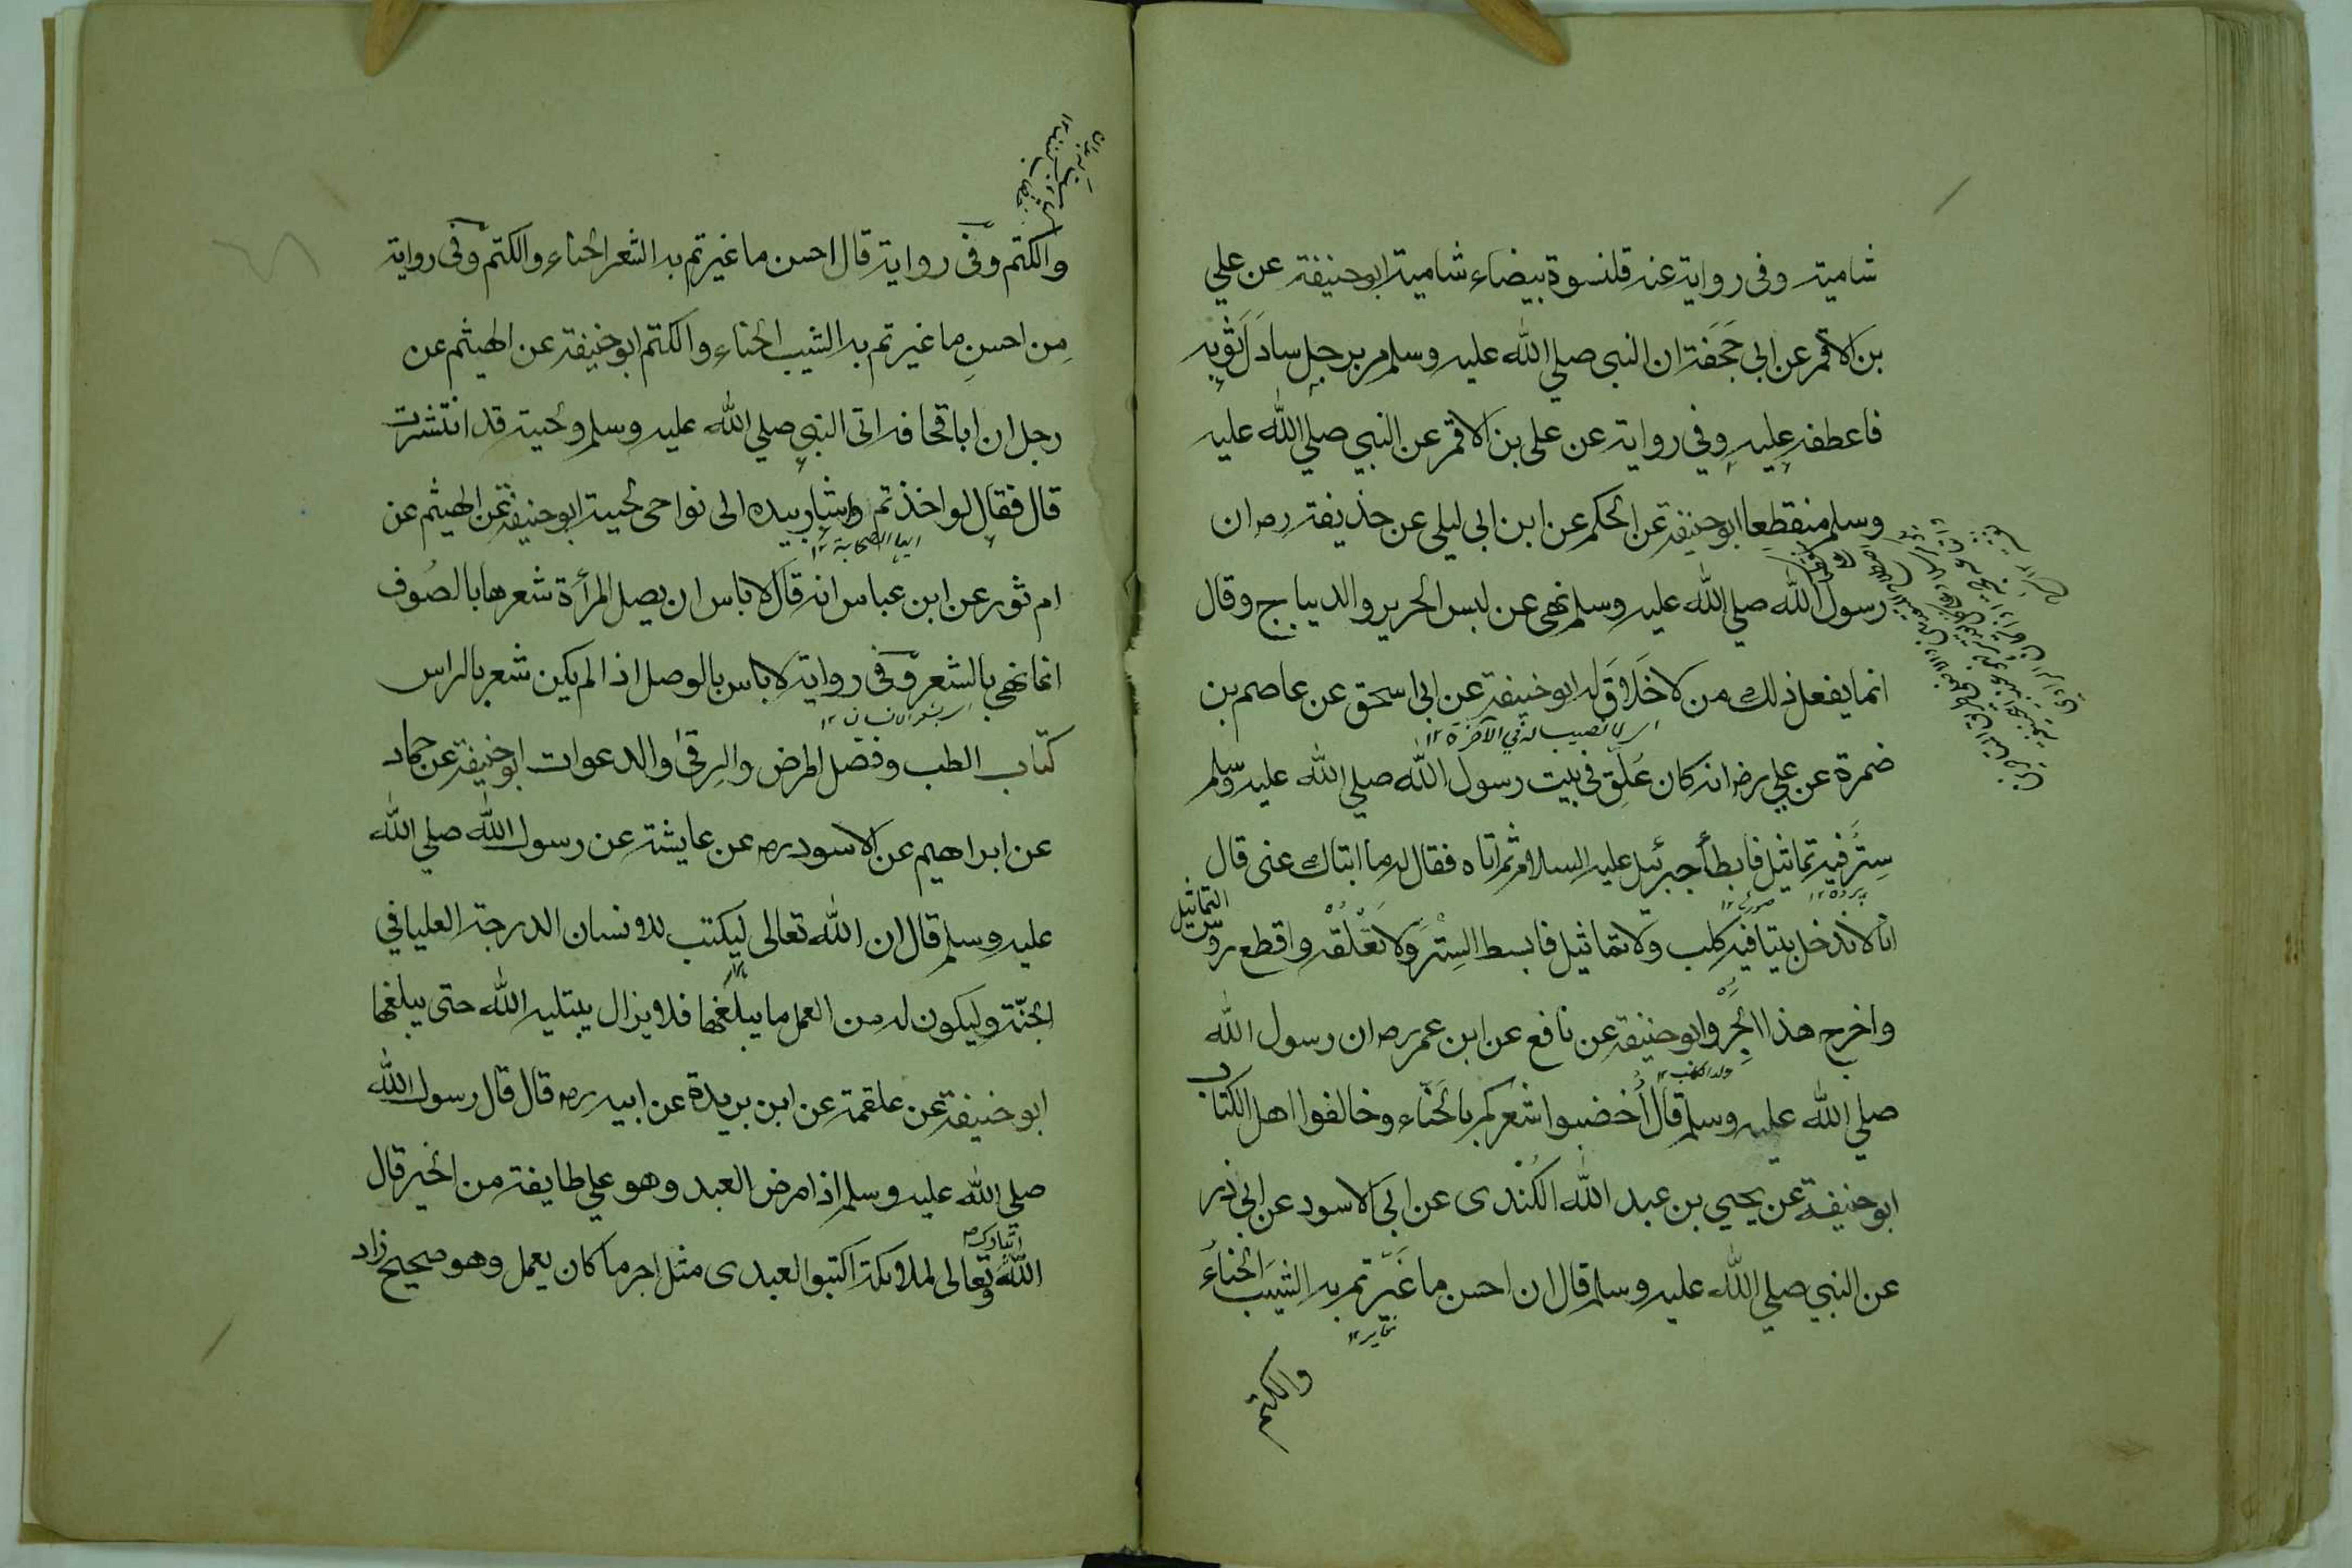 شامية وفى رواية عنه قلنسوة بيضاء شامية ابو حنيفة عن علي
بن الاقمر عن ابى جحفة ان النبى صلي الله عليه وسلم مر برجل سادل ثوبه
فاعطفه عليه وفي رواية عن على بن الاقمر عن النبي صلي الله عليه
وسلم منقطعا ابو حنيفة عن الحكم عن ابن ابى ليلى عن حذيفة رض ان
رسول الله صلي الله عليه وسلم نهى عن لبس الحرير والديباج وقال
انما يفعل ذلك من لا خلاق له ابو حنيفة عن ابى اسحق عن عاصم بن
اى لا نصيب له في الآخرة ١٢
ضمرة عن علي رض انه كان علق فى بيت رسول الله صلي الله عليه وسلم
ستر فيه تماثيل فابطأ جبرئيل عليه السلام ثم اتاه فقال له ما ابتاك عنى قال
پرده ١٢
انا لا ندخل بيتا فيه كلب ولا تماثيل فابسط الستر ولا تعلقه واقطع روس
التماثيل
واخرج هذا الجرو ابو حنيفة عن نافع عن ابن عمر رض ان رسول الله
ولد الكلب ١٢
صلي الله عليه وسلم قال اخضبوا شعركم بالحناء وخالفوا اهل الكتاب
ابو حنيفة عن يحيي بن عبد الله الكندى عن ابى الاسود عن ابى ذر
عن النبي صلي الله عليه وسلم قال ان احسن ما غيرتم به الشيب الحناء
والكتم
والكتم وفى رواية قال احسن ما غيرتم به الشعر الحناء والكتم وفى رواية
من احسن ما غيرتم به الشيب الحناء والكتم ابو حنيفة عن الهيثم عن
رجل ان ابا قحافه اتى النبى صلي الله عليه وسلم ولحيته قد انتشرت
قال فقال لو اخذتم واشار بيده الى نواحى لحيته ابو حنيفة عن الهيثم عن
ايها الصحابة ١٢
ام ثور عن ابن عباس انه قال لا باس ان يصل المرأة شعرها بالصوف
انما نهى بالشعر وفى رواية لا باس بالوصل اذا لم يكن شعر بالراس
اى بشعر الانسان ١٢
كتاب الطب وفضل المرض والرقى والدعوات ابو حنيفة عن حماد
عن ابراهيم عن الاسود رض عن عايشة عن رسول الله صلي الله
عليه وسلم قال ان الله تعالى ليكتب للانسان الدرجة العليا في
الجنة وليكون له من العمل ما يبلغها فلا يزال يبتليه الله حتى يبلغها
ابو حنيفة عن علقمة عن ابن بريدة عن ابيه رض قال قال رسول الله
صلي الله عليه وسلم اذا مرض العبد وهو علي طايفة من الخير قال
الله تبارك وتعالى لملائكته اكتبوا لعبدى مثل اجر ما كان يعمل وهو صحيح زاد